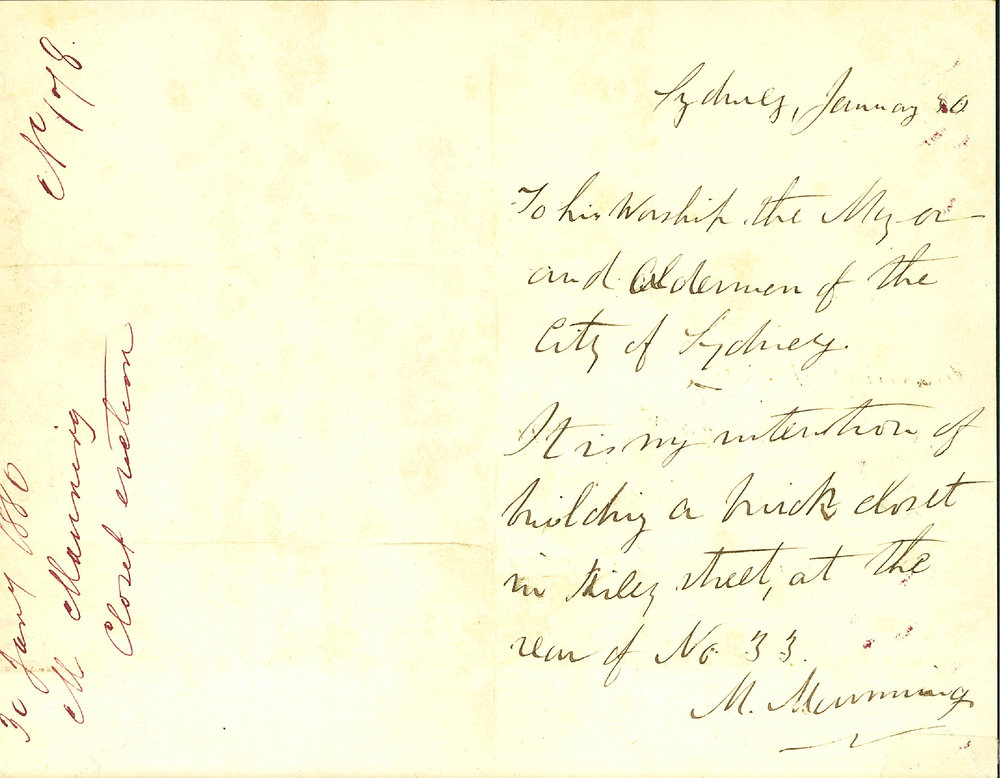 No 178.
30 Jany 1880
M Manning
Closet erection
Sydney, January 80
To his Worship the Mayor
and Aldermen of the
City of Sydney.
It is my intention of
building a brick closet
in Riley street, at the
rear of No. 33.
M. Manning